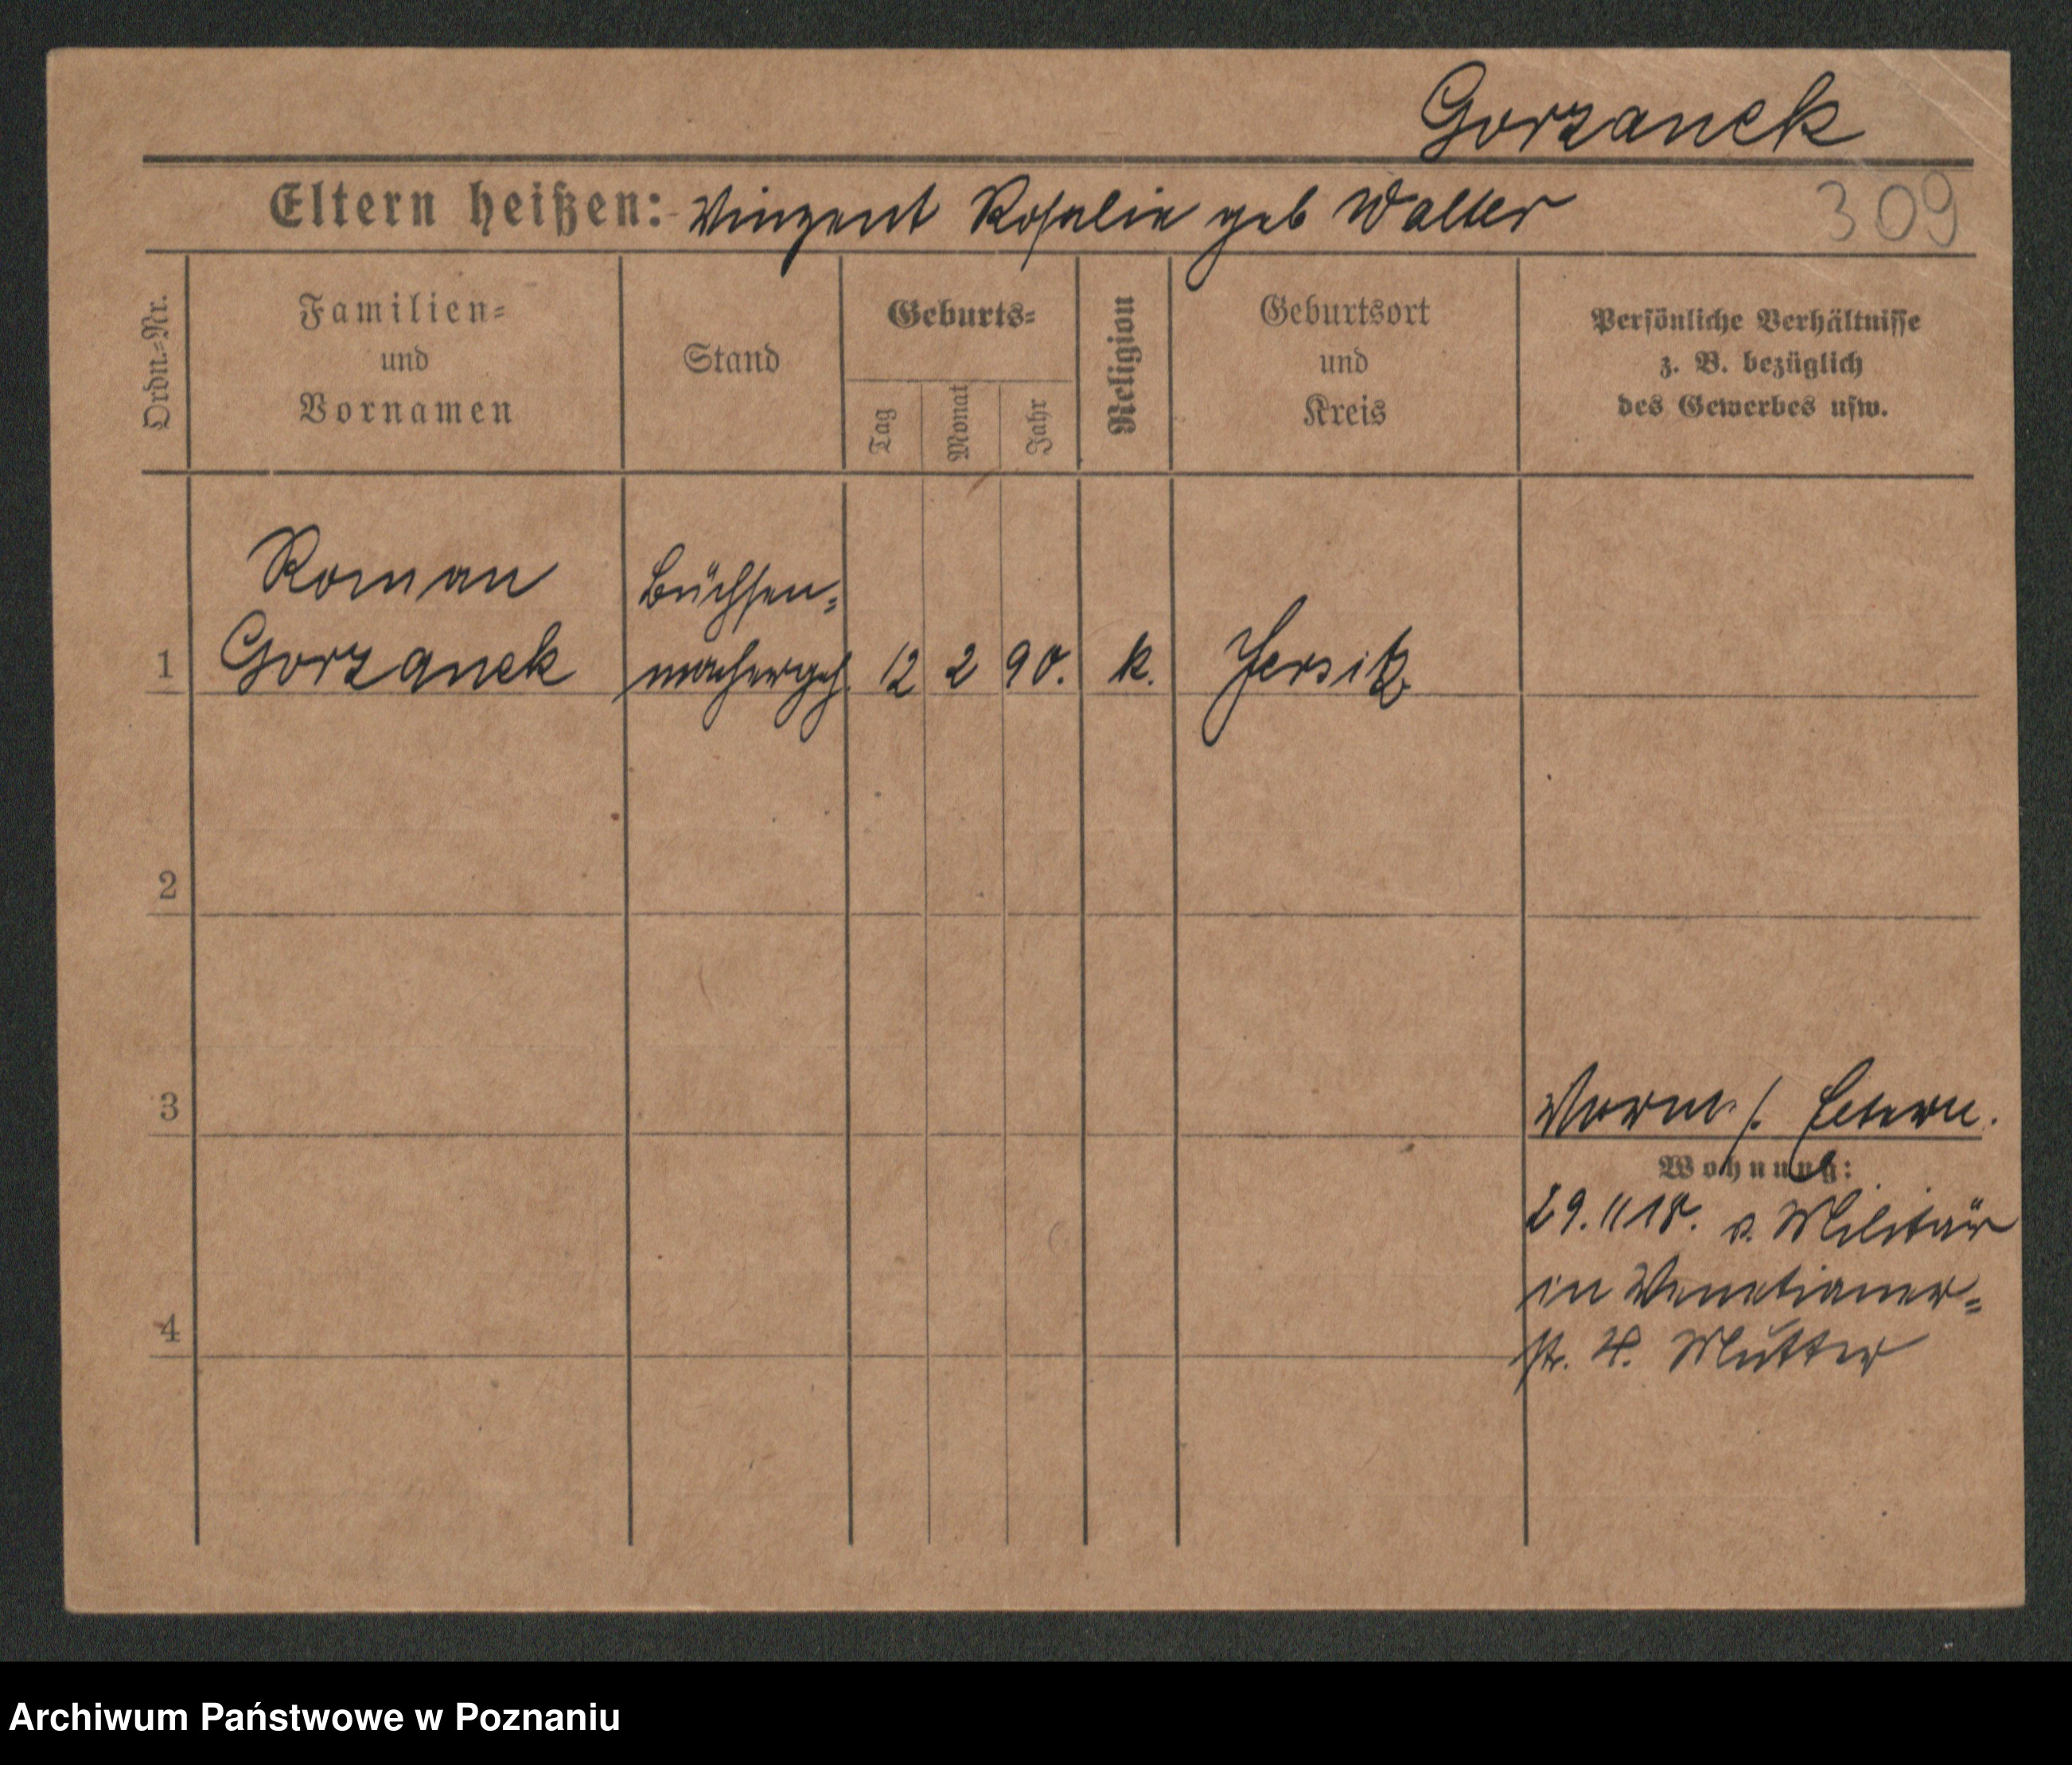 Gorzanek
Eltern heißen: Vinzent Rosalie geb Walter
309
Ordn.-Nr.
Familien-
und
Vornamen
Stand
Geburts-
Tag
Monat
Jahr
Religion
Geburtsort
und
Kreis
Persönliche Verhältnisse
z. B. bezüglich
des Gewerbes usw.
Roman
Gorzanek
Büchsen-
machergeh.
1
12
2
90.
k.
Jersitz
2
3
Vorm. s. Eltern.
Wohnung:
29.11 18. v. Militär
in Venetianer-
4
str. 4. Mutter
Archiwum Państwowe w Poznaniu